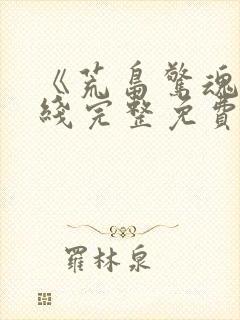 《荒島驚魂
綫完整免費
羅林泉